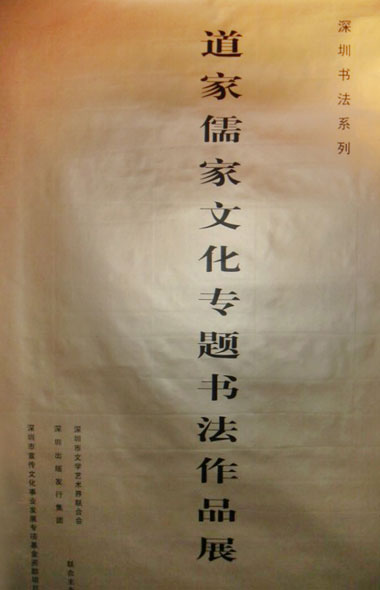 深圳书法系列
道家儒家文化专题书法作品展
深圳市文学艺术界联合会
深圳出版发行集团
联合主
深圳市宣传文化事业发展专项基金资助项目